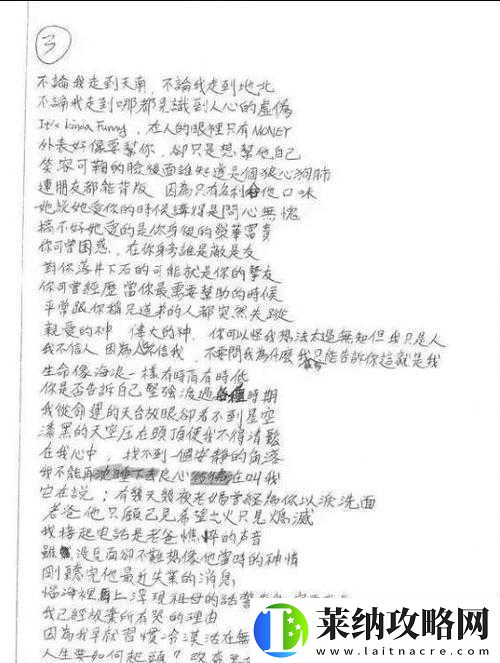 3
不論我走到天南,不論我走到地北
不論我走到哪都見識到人心的虛偽
It's kinda Funny,在人的眼裡只有MONEY
外表好像要幫你,卻只是想幫他自己
笑容可鞠的臉後面誰知道是個狼心狗肺
連朋友都能背叛 因為只有名利合他口味
她說她愛你的時侯講得是問心無愧
搞不好她愛的是你身後的榮華富貴
你可曾困惑,在你身旁誰是敵是友
對你落井下石的可能就是你的摯友
你可曾經歷當你最需要幫助的時候
平常跟你稱兄道弟的人都突然失蹤
親愛的神 偉大的神,你可以怪我想法太過無知但我只是人
我不信人 因為人不信我,不要問我為什麼我只能告訴你這就是我
生命像海浪一樣有時高有時低
你是否告訴自己堅強渡過 時期
我從命運的天台放眼卻看不到星空
漆黑的天空压在頭頂使我不得清鬆
在我心中,找不到一個安靜的角落
我不能再沈睡下去良心 在叫我
它在說:有幾天幾夜老媽曾經為你以淚洗面
老爸他只願己見希望之火只見熄滅
我接起電話是老爸憔悴的声音
雖 沒見面卻不難想像他當時的神情
剛聽完他最近失業的消息
腦海裡 上浮現祖母的話
我已經放棄所有哭的理由
因為我早就習慣冷漠活在無
人生要如何起頭?改變
莱纳攻略网
www.laitnacre.com